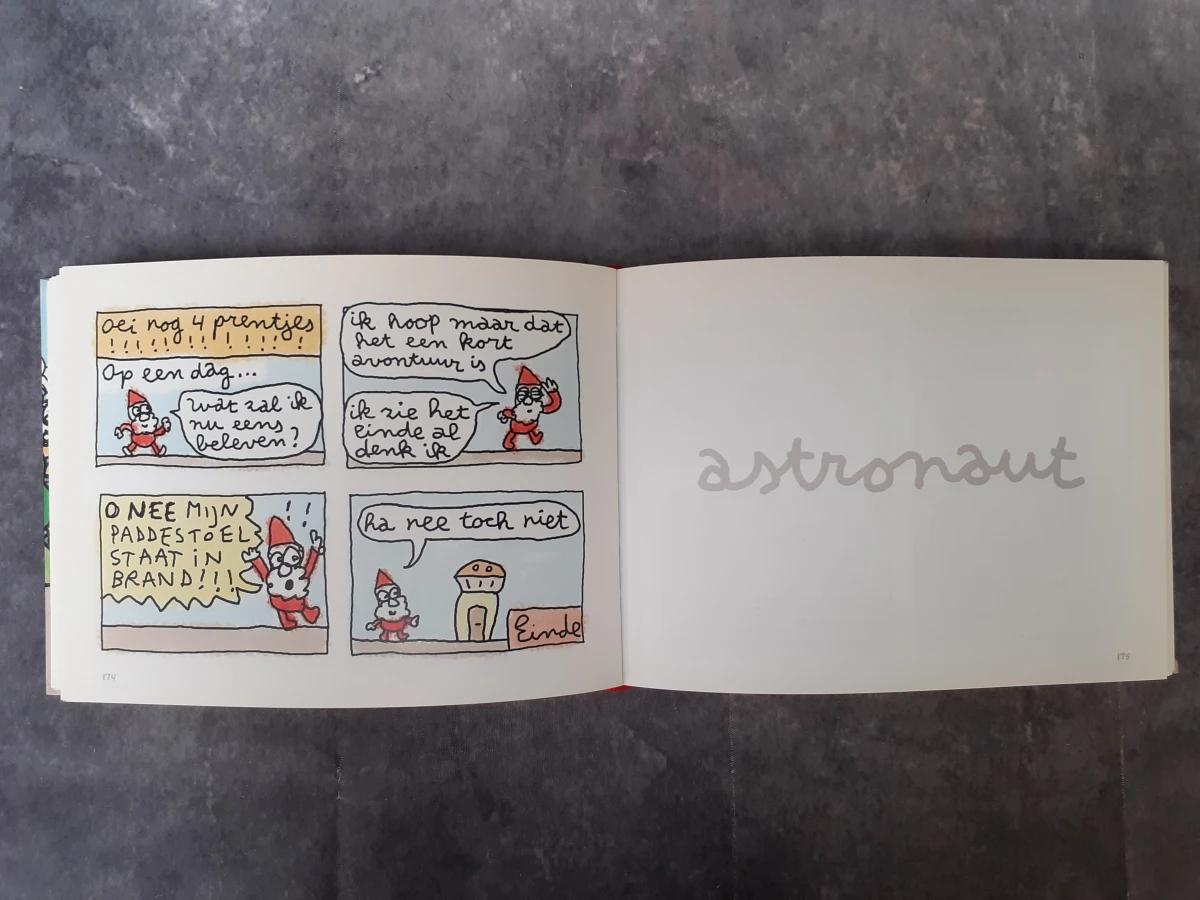 oei nog 4 prentjes
! ! ! ! ! ! ! ! ! !
Op een dag...
wat zal ik
nu eens
beleven?
ik hoop maar dat
het een kort
avontuur is
ik zie het
einde al
denk ik
O NEE MIJN
PADDESTOEL
STAAT IN
BRAND!!!
!!
ha nee toch niet
Einde
174
astronaut
175